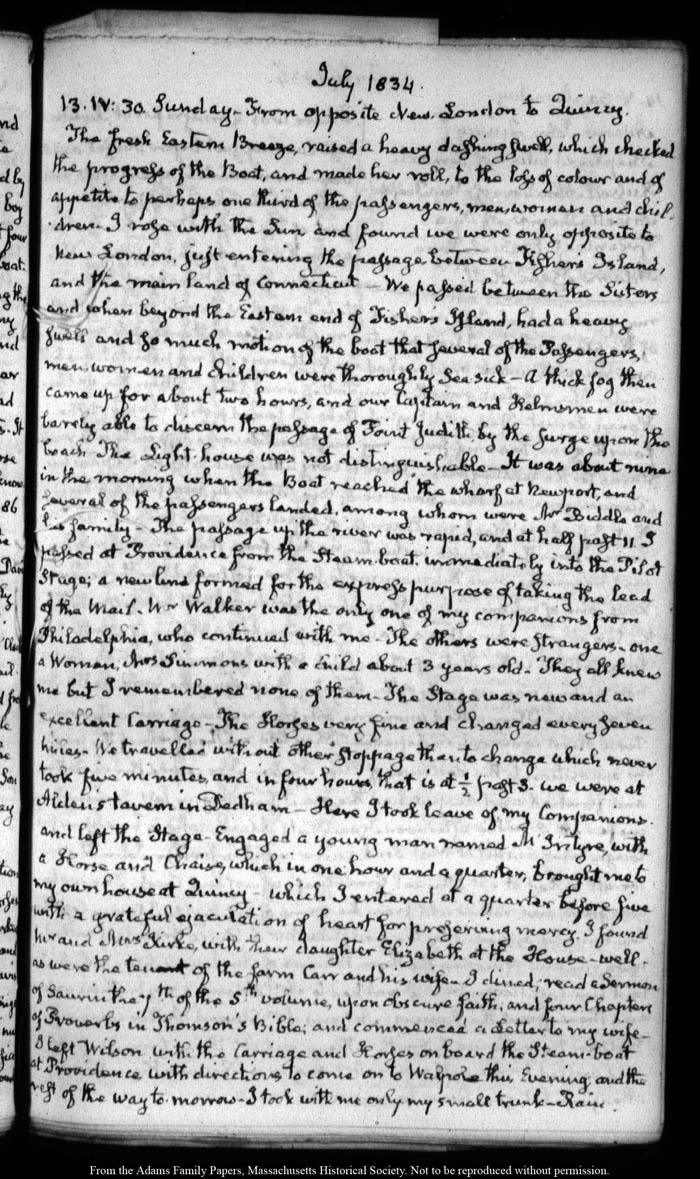 July 1834.
13. IV: 30. Sunday - From opposite New London to Quincy.
The fresh Eastern Breeze, raised a heavy dashing swell, which checked
the progress of the Boat, and made her roll, to the loss of colour and of
appetite to perhaps one third of the passengers, men, women and chil-
dren. I rose with the Sun, and found we were only opposite to
New London, just entering the passage between Fisher's Island,
and the main land of Connecticut - We passed between the Sisters
and when beyond the Eastern end of Fishers Island, had a heavy
swell and so much motion of the boat that several of the Passengers,
men women and children were thoroughly Sea sick - A thick fog then
came up for about two hours, and our Captain and Helmsmen were
barely able to discern the passage of Point Judith by the surge upon the
beach The Light-house was not distinguishable - It was about nine
in the morning when the Boat reached the wharf at Newport, and
several of the passengers landed, among whom were Mr Biddle and
his family - The passage up the river was rapid, and at half past 11 I
passed at Providence from the Steam boat immediately into the Pilot
Stage; a new line formed for the express purpose of taking the lead
of the Mail. Mr Walker was the only one of my companions from
Philadelphia, who continued with me - The others were strangers - one
a Woman, Mrs Simmons with a child about 3 years old - They all knew
me but I remembered none of them - The Stage was new and an
excellent Carriage - The Horses very fine and changed every seven
miles - We travelled without other stoppage than to change which never
took five minutes, and in four hours, that is at ½ past 3. we were at
Alden's tavern in Dedham - Here I took leave of my Companions.
and left the Stage - Engaged a young man named McIntyre, with
a Horse and Chaise, which in one hour and a quarter, brought me to
my own house at Quincy - which I entered at a quarter before five
with a grateful ejaculation of heart for preserving mercy. I found
Mr and Mrs Kirke, with their daughter Elizabeth at the House - well -
as were the tenant of the farm Carr and his wife - I dined; read a Sermon
of Saurin the 7th of the 5th volume, upon obscure faith, and four Chapters
of Proverbs in Thomson's Bible; and commenced a Letter to my wife -
I left Wilson with the Carriage and Horses on board the Steam-boat
at Providence with directions to come on to Walpole this Evening, and the
rest of the way to-morrow - I took with me only my small trunk - Rain.
From the Adams Family Papers, Massachusetts Historical Society. Not to be reproduced without permission.